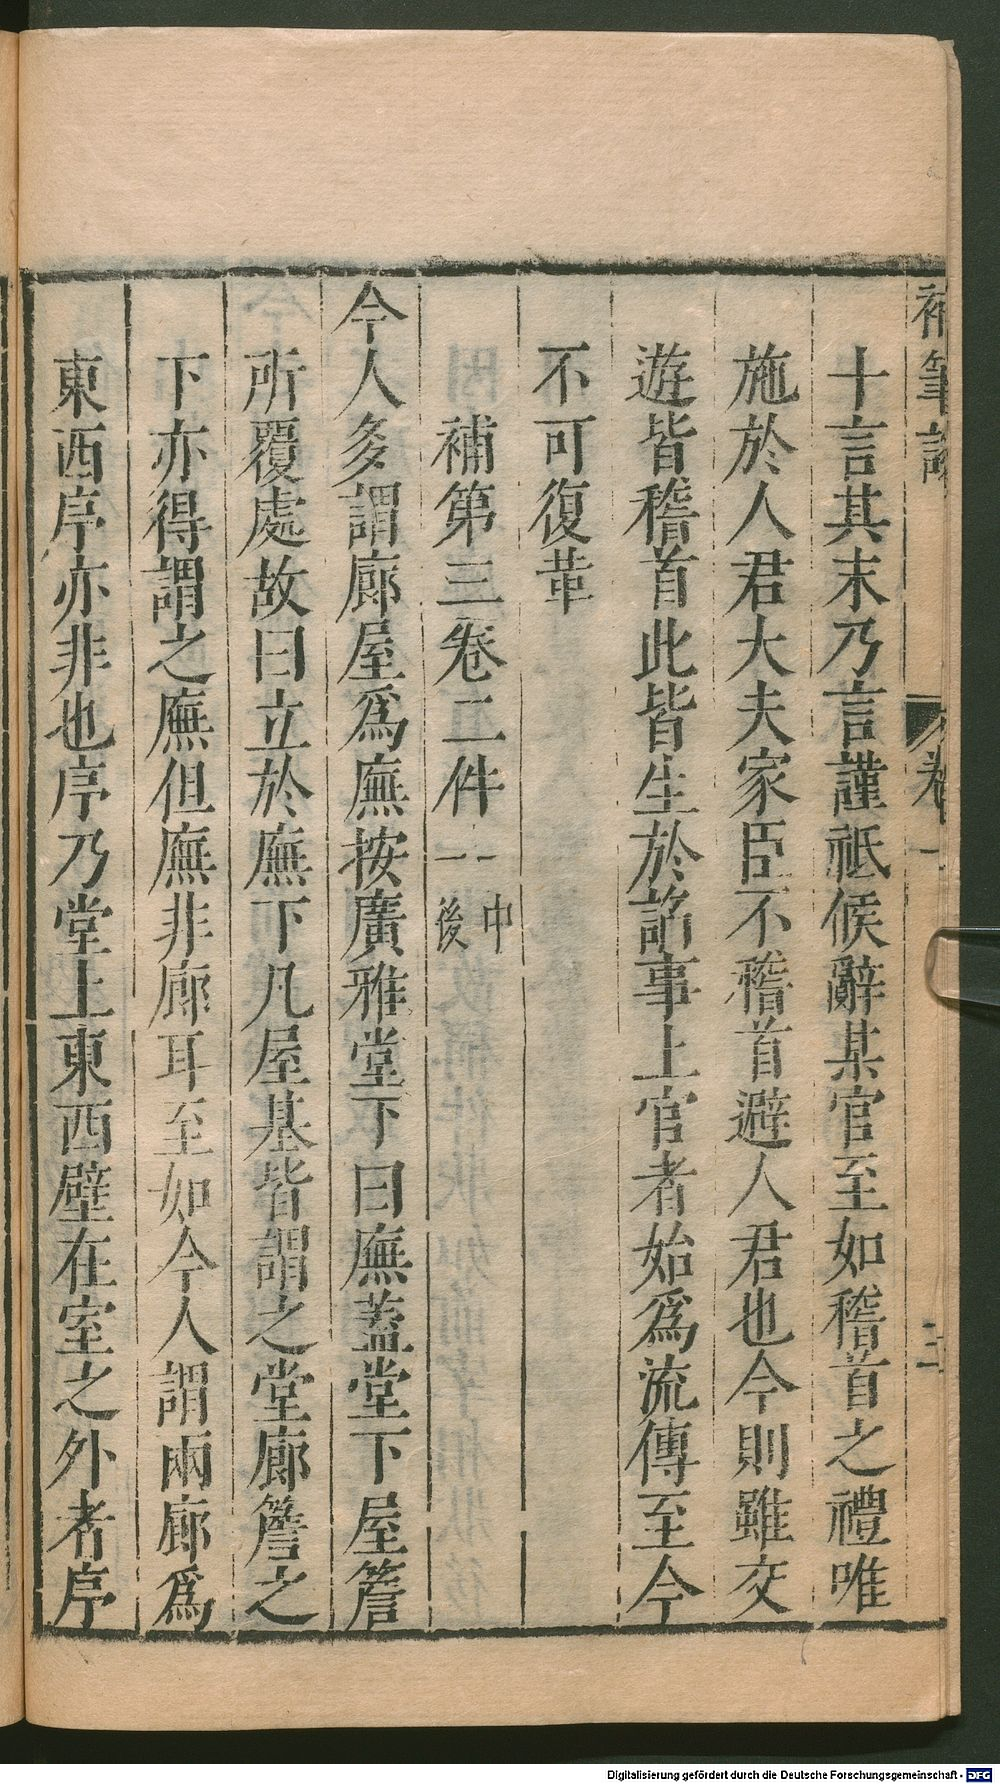 補筆談
卷一
二
十言其末乃言謹祗候辭某官至如稽首之禮唯
施於人君大夫家臣不稽首避人君也今則雖交
遊皆稽首此皆生於諂事上官者始爲流傳至今
不可復革
補第三卷二件一中一後
今人多謂廊屋爲廡按廣雅堂下曰廡蓋堂下屋簷
所覆處故曰立於廡下凡屋基皆謂之堂廊簷之
下亦得謂之廡但廡非廊耳至如今人謂兩廊爲
東西序亦非也序乃堂上東西壁在室之外者序
Digitalisierung gefördert durch die Deutsche Forschungsgemeinschaft - DFG